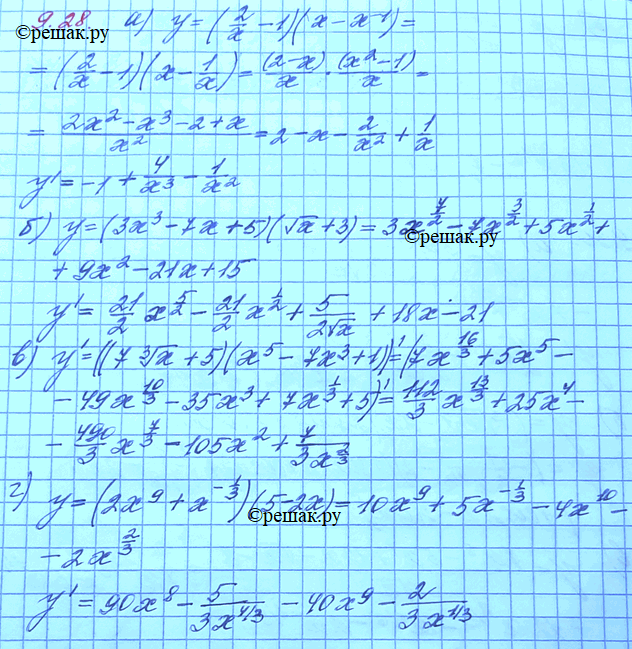 9.28 а) y = (2/x - 1)(x - x⁻¹) =
©решак.ру
= (2/x - 1)(x - 1/x) = (2-x)/x · (x² - 1)/x =
= (2x² - x³ - 2 + x)/x² = 2 - x - 2/x² + 1/x
y' = -1 + 4/x³ - 1/x²
б) y = (3x³ - 7x + 5)(√x + 3) = 3x^(7/2) - 7x^(3/2) + 5x^(1/2) +
©решак.ру
+ 9x² - 21x + 15
y' = 21/2 x^(5/2) - 21/2 x^(1/2) + 5/(2√x) + 18x - 21
в) y' = ((7 ∛x + 5)(x⁵ - 7x³ + 1))' = (7x^(16/3) + 5x⁵ -
- 49x^(10/3) - 35x³ + 7x^(1/3) + 5)' = 112/3 x^(13/3) + 25x⁴ -
- 490/3 x^(7/3) - 105x² + 7/(3x^(2/3))
г) y = (2x⁹ + x^(-1/3))(5 - 2x) = 10x⁹ + 5x^(-1/3) - 4x¹⁰ -
©решак.ру
- 2x^(2/3)
y' = 90x⁸ - 5/(3x^(4/3)) - 40x⁹ - 4/(3x^(1/3))